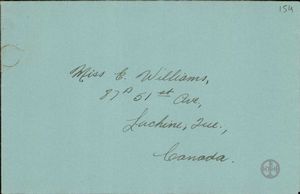 154
Miss E. Williams,
87A 51st Ave,
Lachine, Que.,
Canada.